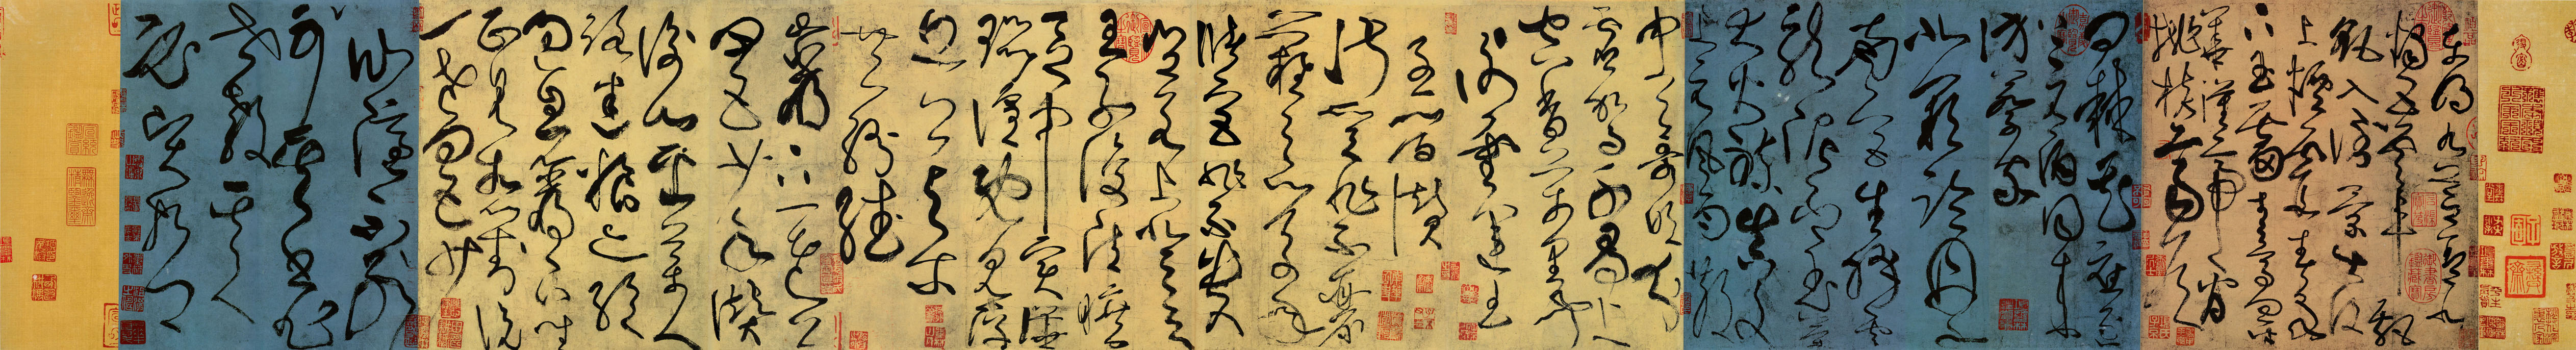 東明九芝蓋北
燭五雲車飄
飖入倒景出沒
上煙霞春泉
下玉霤青鳥向金
華漢帝看
桃核齊侯
問棘花應逐
上元酒同來
訪蔡家
北闕臨丹水
南宮生絳雲
龍泥印玉簡
大火練真文
上元風雨散
中天歌吹分
虛駕千尋上
空香萬里聞
謝靈運王
子晉讚
淑質非不麗
難之以萬年
儲宮非不貴
豈若上登天
王子復清曠
區中實譁囂
喧既見浮
丘公與爾
共紛繙
巖下一老公
四五少年讚
衡山採藥人
路迷糧亦絕
過息巖下坐
正見相對說
一老四五少
仙隱不別
可其書非
世教其人
必賢哲